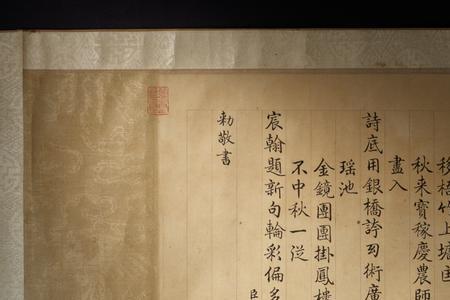 移梧竹上塘
秋来寳稼慶農師
盡入
詩底用銀橋誇幻術廣
瑶池
金鏡團團掛鳳樓
不中秋一從
宸翰題新句輪彩偏多
臣
勅敬書